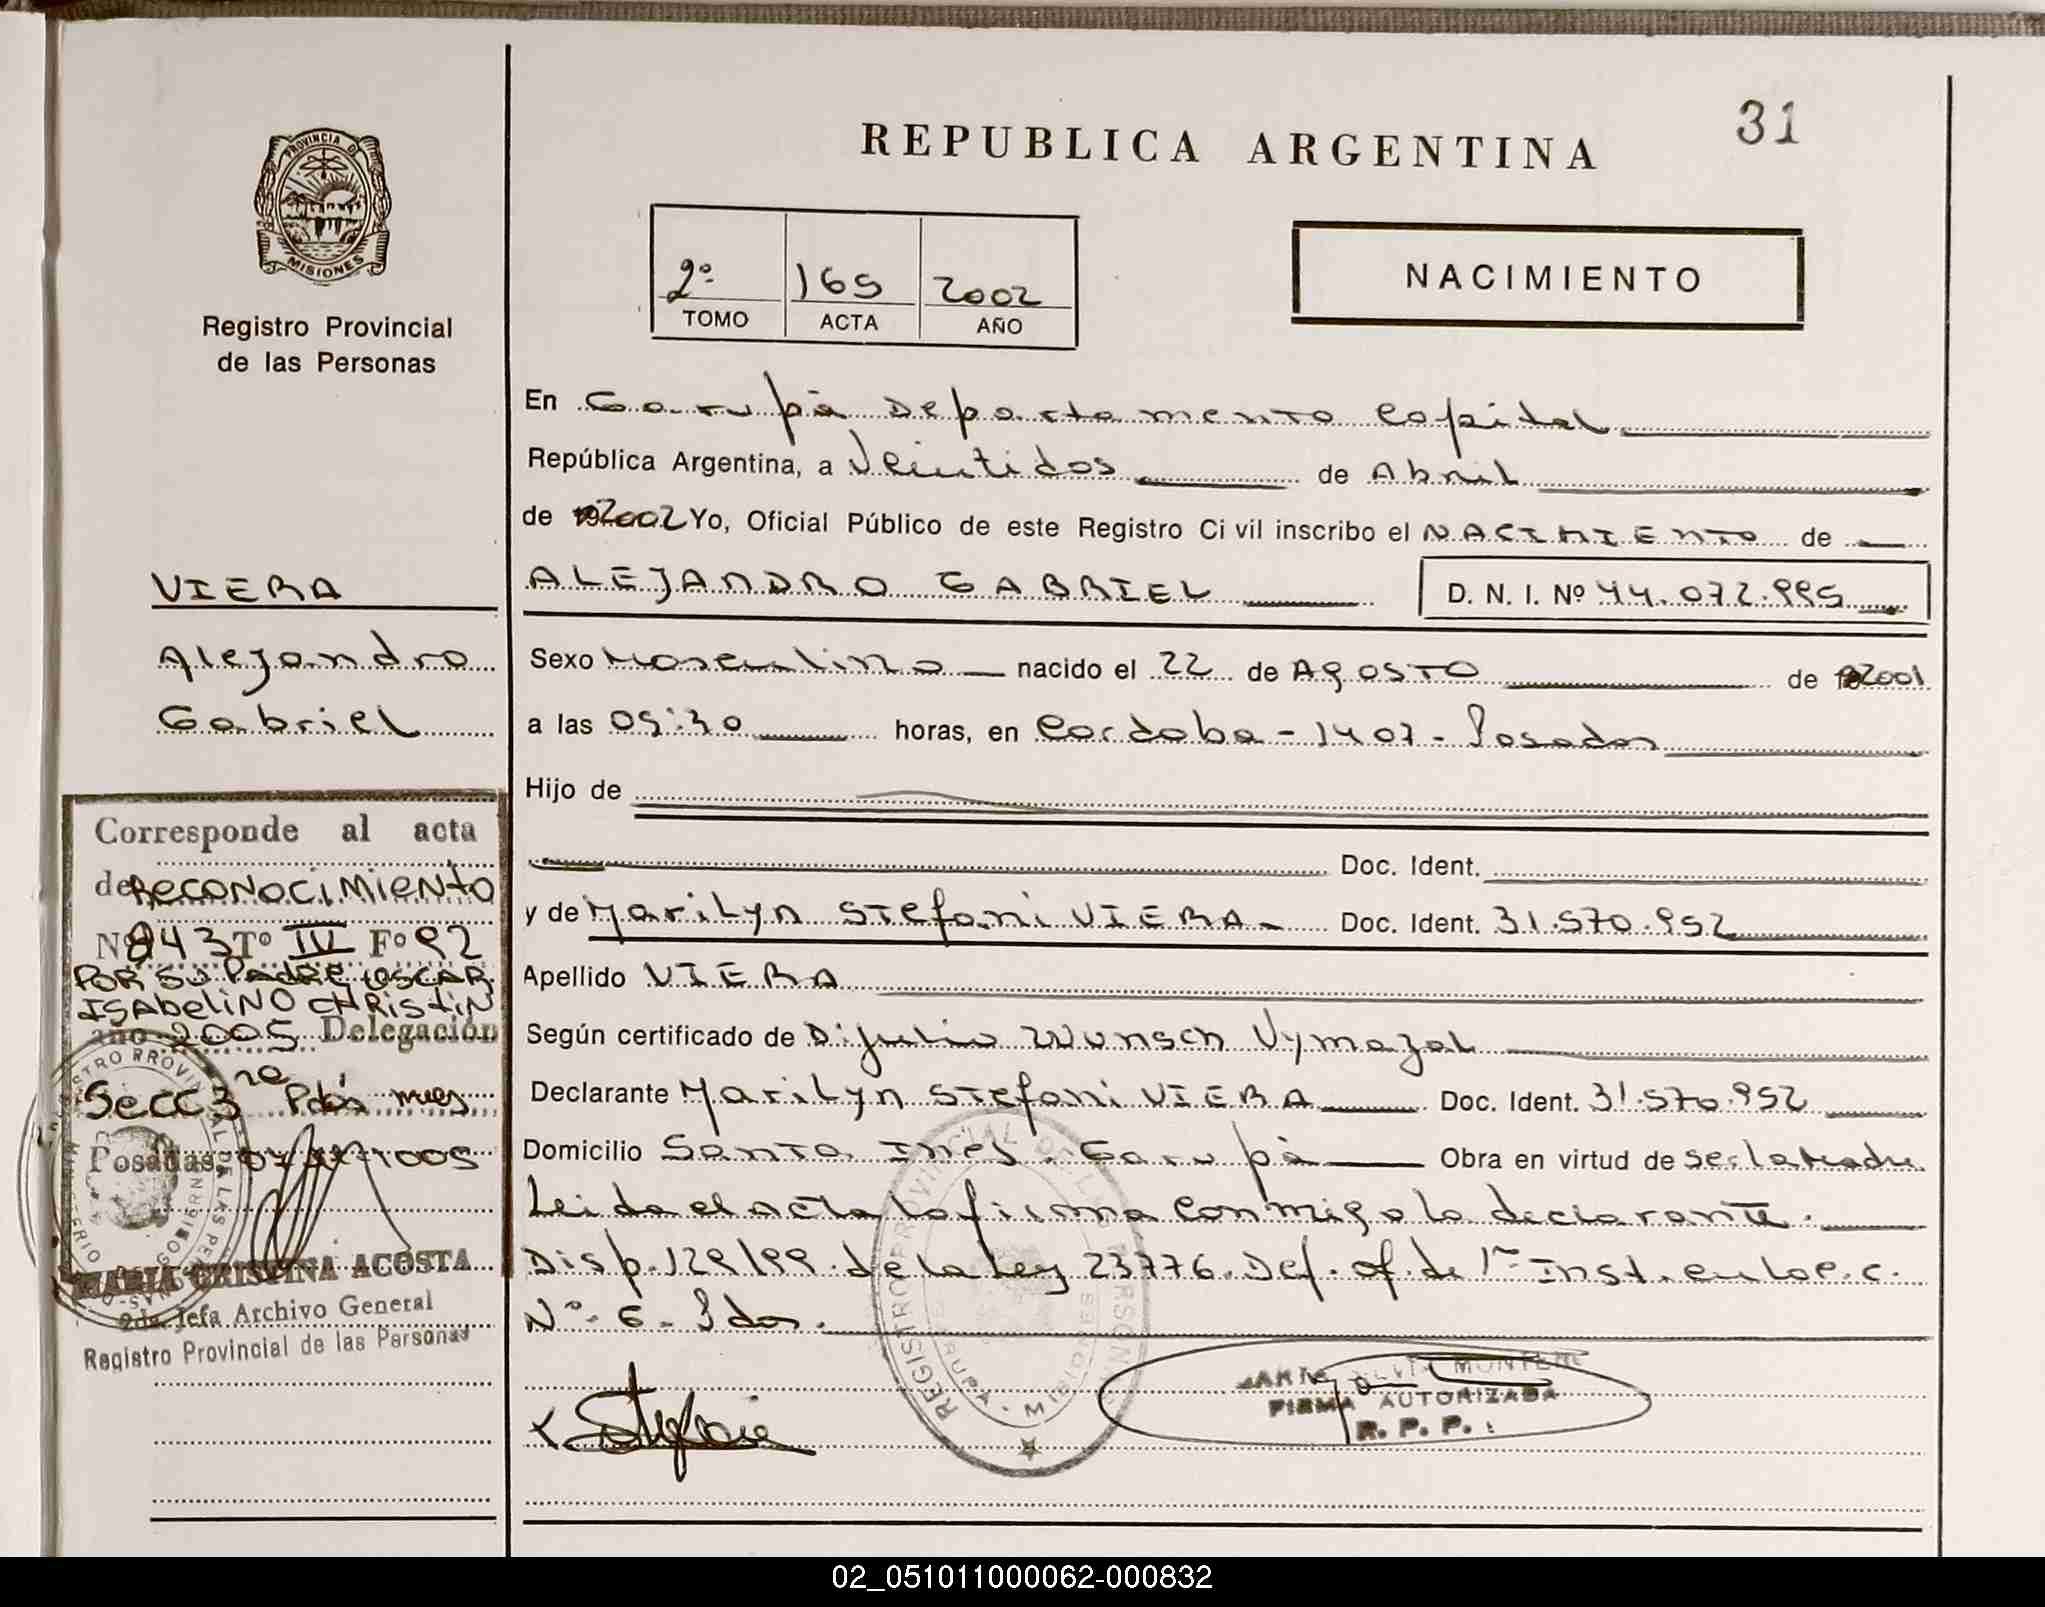 31
REPUBLICA ARGENTINA
PROVINCIA DE
MISIONES
Registro Provincial
de las Personas
2º 165 2002
TOMO ACTA AÑO
NACIMIENTO
En Garupá Departamento Capital
República Argentina, a Veintidos de Abril
de 2002 Yo, Oficial Público de este Registro Civil inscribo el NACIMIENTO de
ALEJANDRO GABRIEL D. N. I. Nº 44.072.995
Sexo Masculino nacido el 22 de AGOSTO de 2001
a las 05:30 horas, en Cordoba - 1407 - Posadas
Hijo de
Doc. Ident.
y de Marilyn Stefani VIERA Doc. Ident. 31.570.952
Apellido VIERA
Según certificado de D. Julio Wunsch Vymazal
Declarante Marilyn Stefani VIERA Doc. Ident. 31.570.952
Domicilio Santa Ines. Garupá Obra en virtud de ser la madre
Leida el acta la firma conmigo la declarante.
Disp. 129/99. de la Ley 23776. Def. of. de 1ra Inst. en lo C. C.
Nº 6 - Pdas.
FIRMA AUTORIZADA
R. P. P.
VIERA
Alejandro
Gabriel
Corresponde al acta
de RECONOCIMIENTO
Nº 943 Tº IV Fº 92
POR SU PADRE OSCAR
ISABELINO CHRISTIN
año 2005 Delegación
Secc 3ra Pdas mnes
Posadas, 07
MARIA CRISTINA ACOSTA
2da. Jefa Archivo General
Registro Provincial de las Personas
02_051011000062-000832